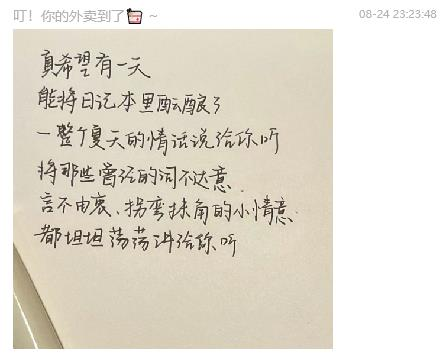 叮！你的外卖到了🥡 ~
08-24 23:23:48
真希望有一天
能将日记本里酝酿了
一整个夏天的情话说给你听
将那些曾经的词不达意、
言不由衷、拐弯抹角的小情意
都坦坦荡荡讲给你听